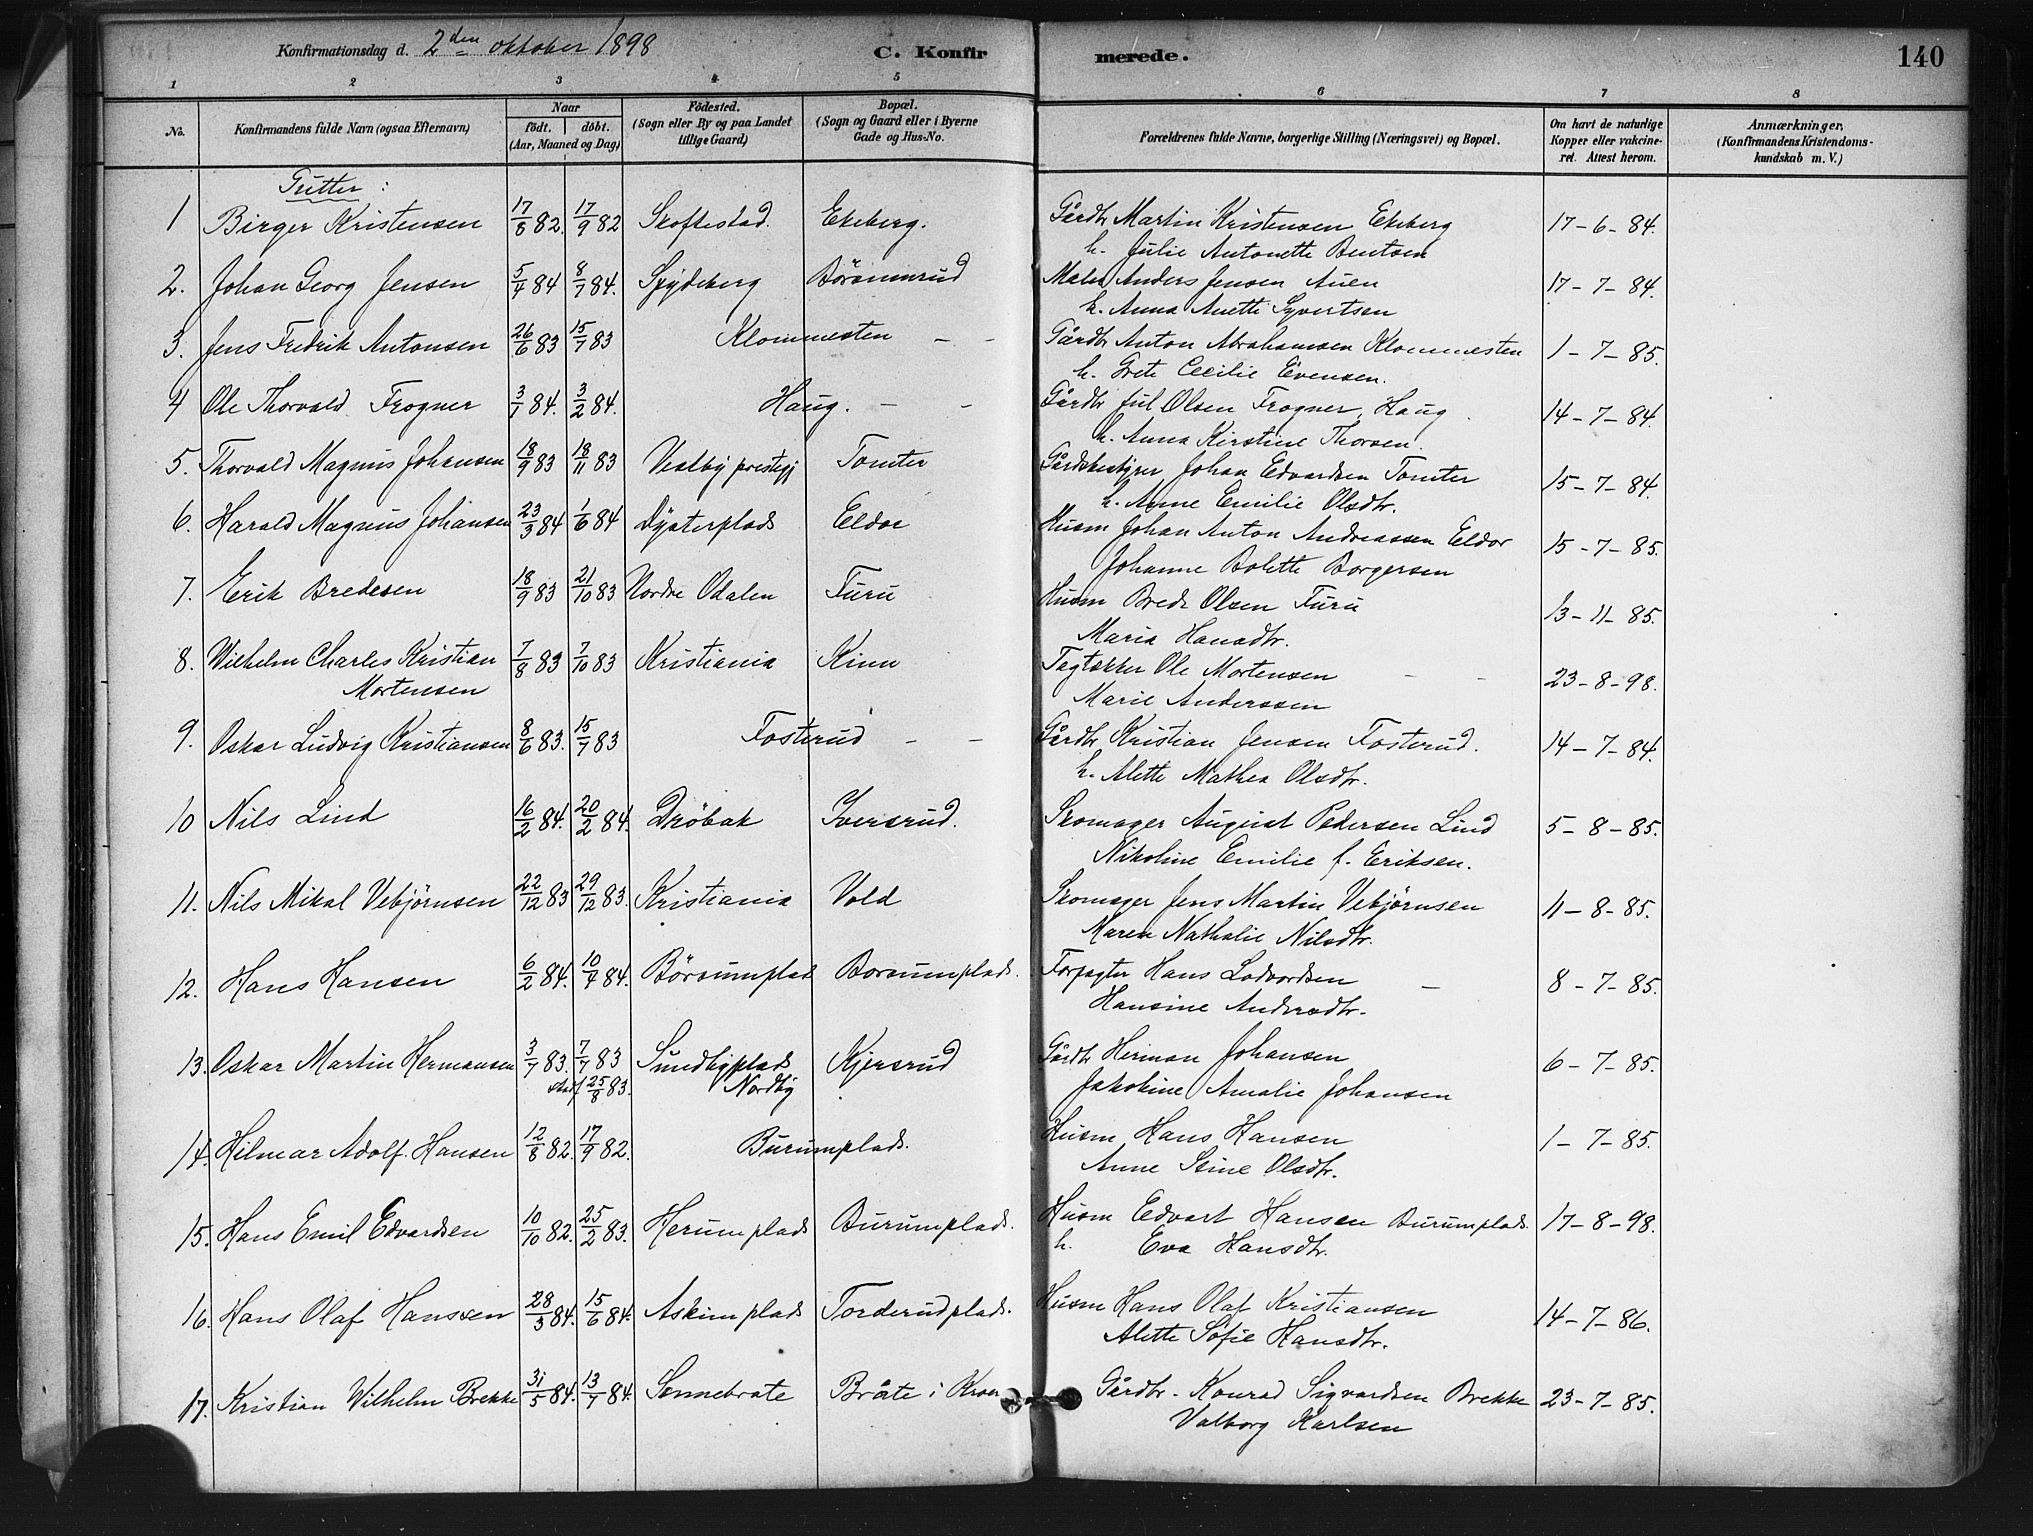 Konfirmationsdag d. 2den oktober 1898 C. Konfirmerede. 140
1 2 3 4 5 6 7 8
No. Konfirmandens fulde Navn (ogsaa Efternavn) Naar födt. döbt. (Aar, Maaned og Dag) Födested. (Sogn eller By og paa Landet tillige Gaard) Bopæl. (Sogn og Gaard eller i Byerne Gade og Hus-No. Forældrenes fulde Navne, borgerlige Stilling (Næringsvei) og Bopæl. Om havt de naturlige Kopper eller vakcineret. Attest herom. Anmærkninger. (Konfirmandens Kristendomskundskab m. V.)
Gutter:
1 Birger Kristensen 17/8 82. 17/9 82 Skoftestad. Ekeberg. Gårdbr Martin Kristensen Ekeberg 17-6-84.
h. Julie Antonette Bentsen
2. Johan Georg Jensen 5/4 84 8/7 84. Spydeberg Börsumrud Maler Anders Jensen Auen 17-7-84.
h. Anna Anette Syvertsen
3. Jens Fredrik Antonsen 26/6 83 15/7 83 Klommesten - - Gårdbr Anton Abrahamsen Klommesten 1-7-85.
h. Grete Cecilie Evensen.
4 Ole Thorvald Frogner 3/1 84. 3/2 84. Haug. - - Gårdbr Jul Olsen Frogner, Haug 14-7-84
h. Anna Kirstine Thorsen.
5. Thorvald Magnus Johansen 18/9 83 18/11 83 Vestby prestegj Tomter Gårdsbestyrer Johan Edvardsen Tomter 15-7-84
h. Anne Emilie Olsdtr.
6. Harald Magnus Johansen 23/3 84 1/6 84 Dysterplads Eldor Husm Johan Anton Andreassen Eldor 15-7-85.
Johanne Bolette Borgersen
7. Erik Bredesen 18/9 83 21/10 83 Nordre Odalen Furu Husm Brede Olsen Furu 13-11-85.
Maria Hansdtr.
8. Wilhelm Charles Kristian 7/8 83 7/10 83 Kristiania Kinn Tagtækker Ole Mortensen - - 23-8-98.
Mortensen Marie Anderssen
9. Oskar Ludvig Kristiansen 8/6 83. 15/7 83 Fosterud - - Gårdbr Kristian Jensen Fosterud. 14-7-84.
h. Alette Mathea Olsdtr.
10 Nils Lind 16/2 84. 20/2 84. Dröbak Iversrud. Skomager August Pedersen Lind 5-8-85.
Nikoline Emilie f. Eriksen.
11. Nils Mikal Vebjörnsen 22/12 83 29/12 83. Kristiania Vold Skomager Jens Martin Vebjörnsen 11-8-85.
Maren Nathalie Nilsdtr.
12. Hans Hansen 6/2 84. 10/4 84. Börsumplad Borsumplads. Forpagter Hans Lodvordsen - 8-7-85.
Hansine Andersdtr.
13. Oskar Martin Hermansen 3/7 83. 7/7 83 Sundbyplads Kjersrud Gårdbr Herman Johansen 6-7-85.
stadf 25/8 83. Nordby Jakobine Amalie Johansen
14. Hilmar Adolf Hansen 12/8 82. 17/9 82. Burumplads. Husm Hans Hansen 1-7-85.
Anne Stine Olsdtr.
15. Hans Emil Edvardsen 10/10 82. 25/2 83. Herumplads Burumplads. Husm Edvart Hansen Burumplads. 17-8-98.
h. Eva Hansdtr.
16. Hans Olaf Hanssen 28/3 84. 15/6 84. Askimplads Torderudplads. Husm Hans Olaf Kristiansen 14-7-86.
Alette Sofie Hansdtr.
17. Kristian Wilhelm Brekke 31/5 84. 13/7 84. Sonnebrate Bråte i Kroer Gårdbr. Konrad Sigvardsen Brekke 23-7-85.
Valborg Karlsen